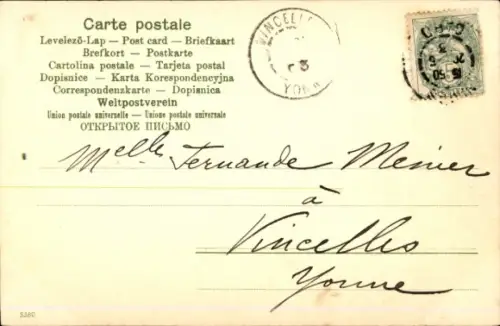 Carte postale
Levelező-Lap — Post card — Briefkaart
Brefkort — Postkarte
Cartolina postale — Tarjeta postal
Dopisnice — Karta Korespondencyjna
Correspondenzkarte — Dopisnica
Weltpostverein
Union postale universelle — Unione postale universale
ОТКРЫТОЕ ПИСЬМО
VINCELLES
YONNE
Melle Fernande Menier
à
Vincelles
Yonne